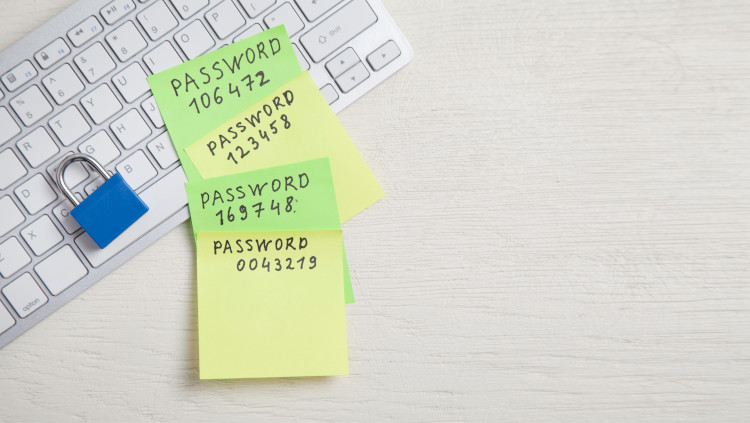 PASSWORD
106472
PASSWORD
123458
PASSWORD
169748.
PASSWORD
0043219
option